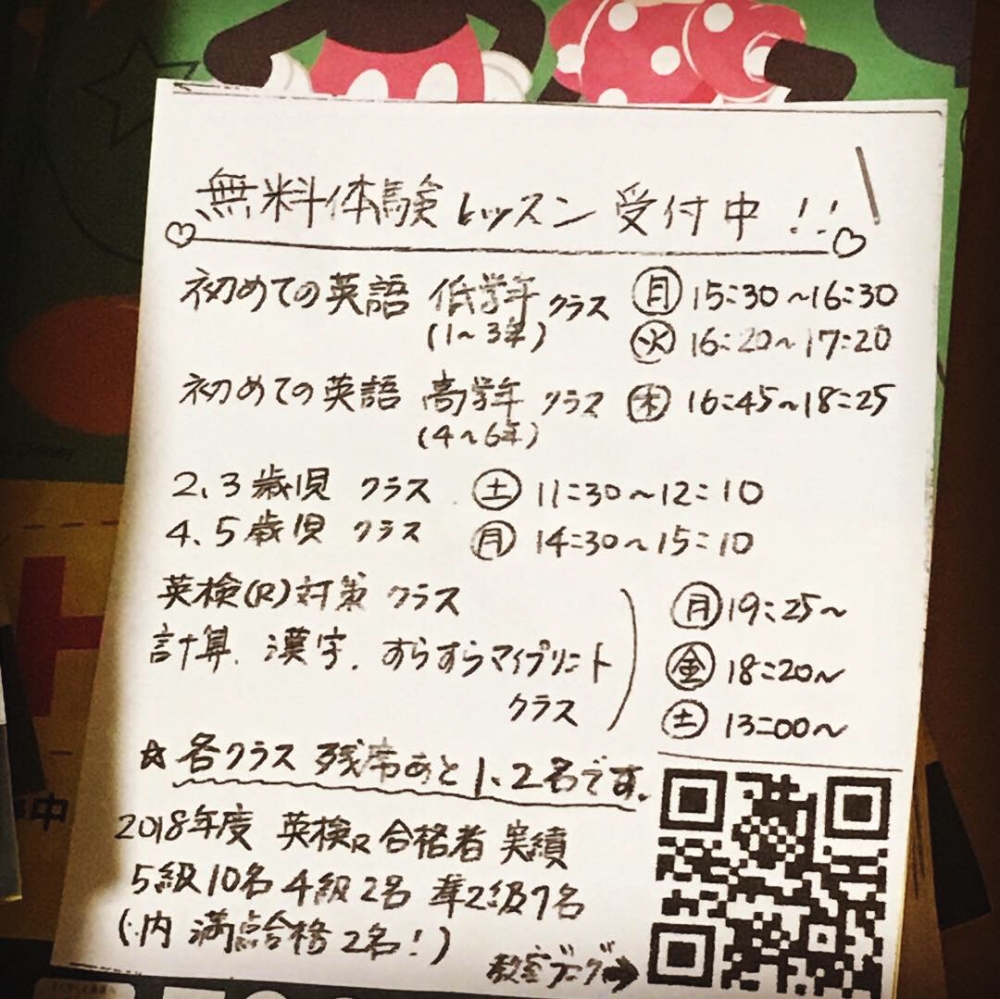 無料体験レッスン 受付中!!
初めての英語 低学年 クラス ㊊ 15:30〜16:30
(1〜3年) ㊋ 16:20〜17:20
初めての英語 高学年 クラス ㊍ 16:45〜18:25
(4〜6年)
2、3歳児 クラス ㊏ 11:30〜12:10
4、5歳児 クラス ㊊ 14:30〜15:10
英検(R)対策 クラス ㊊ 19:25〜
計算、漢字、すらすらマイプリント ㊎ 18:20〜
クラス ㊏ 13:00〜
☆ 各クラス 残席あと1、2名です。
2018年度 英検R合格者 実績
5級10名 4級2名 準2級7名
(内 満点合格 2名!)
教室ブログ→
Disney
中